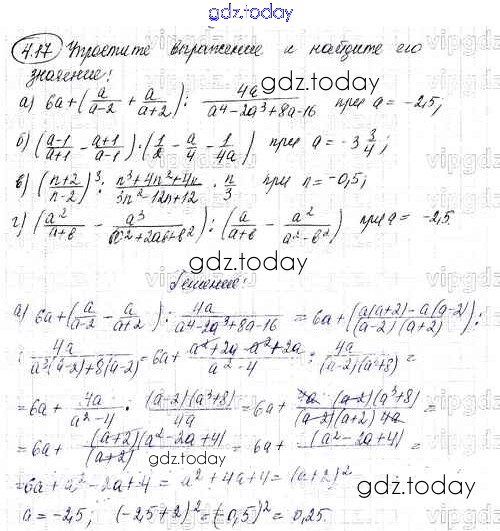 gdz.today
4.17 Упростите выражение и найдите его
значение:
gdz.today
а) 6a+(a/(a-2) + a/(a+2)) : 4a/(a⁴-2a³+8a-16) при a = -2,5;
б) ((a-1)/(a+1) - (a+1)/(a-1)) · (1/2 - a/4 - 1/(4a)) при a = -3 3/4;
в) ((n+2)/(n-2))³ : (n³+4n²+4n)/(3n²-12n+12) · n/3 при n = -0,5;
г) (a²/(a+b) - a³/(a²+2ab+b²)) : (a/(a+b) - a²/(a²-b²)) при a = -2,5
gdz.today
Решение:
а) 6a+(a/(a-2) - a/(a+2)) : 4a/(a⁴-2a³+8a-16) = 6a+((a(a+2)-a(a-2))/((a-2)(a+2))) :
: 4a/(a³(a-2)+8(a-2)) = 6a+ (a²+2a-a²+2a)/(a²-4) : 4a/((a-2)(a³+8)) =
= 6a+ 4a/(a²-4) · ((a-2)(a³+8))/4a = 6a+ (4a (a-2)(a³+8))/((a-2)(a+2) 4a) =
= 6a+ ((a+2)(a²-2a+4))/(a+2) = 6a+ (a²-2a+4) =
gdz.today
= 6a+a²-2a+4 = a²+4a+4 = (a+2)²
a = -2,5; (-2,5+2)² = (-0,5)² = 0,25.
gdz.today